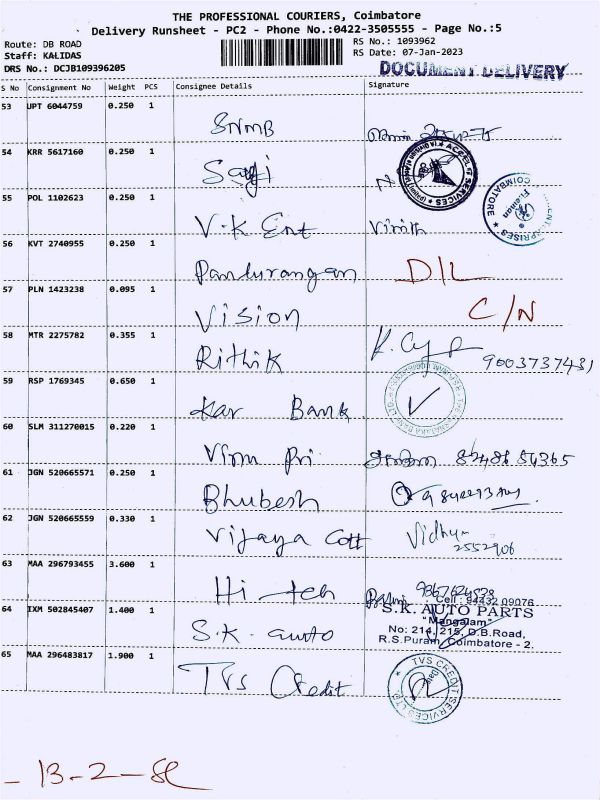 THE PROFESSIONAL COURIERS, Coimbatore
Delivery Runsheet - PC2 - Phone No.:0422-3505555 - Page No.:5
Route: DB ROAD
Staff: KALIDAS
DRS No.: DCJB109396205
RS No.: 1093962
RS Date: 07-Jan-2023
DOCUMENT DELIVERY
S No Consignment No Weight PCS Consignee Details Signature
53 UPT 6044759 0.250 1
SNMB
54 KRR 5617160 0.250 1
Sagi
55 POL 1102623 0.250 1
V.K Ent Vinith
COIMBATORE
56 KVT 2740955 0.250 1
Pandurangan D/L
57 PLN 1423238 0.095 1
Vision C/N
58 MTR 2275782 0.355 1
Rithik 9003737431
59 RSP 1769345 0.650 1
Kar Bank
60 SLM 311270015 0.220 1
Vinu Pri
61 JGN 520665571 0.250 1
Bhubesh
62 JGN 520665559 0.330 1
Vijaya Cott Vidhya
2552906
63 MAA 296793455 3.600 1
Hi-tech
Cell : 94432 09076
64 IXM 502845407 1.400 1
S.K. auto
S.K. AUTO PARTS
"Mangalam"
No: 214, 215, D.B.Road,
R.S.Puram, Coimbatore - 2.
65 MAA 296483817 1.900 1
TVS Credit
TVS CREDIT SERVICES LTD
- 13-2-